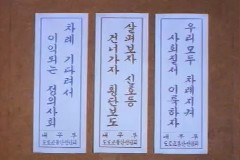 차례 기다려서
이익되는 정의사회
살펴보자 신호등
건너가자 횡단보도
우리모두 차례지켜
사회질서 이룩하자